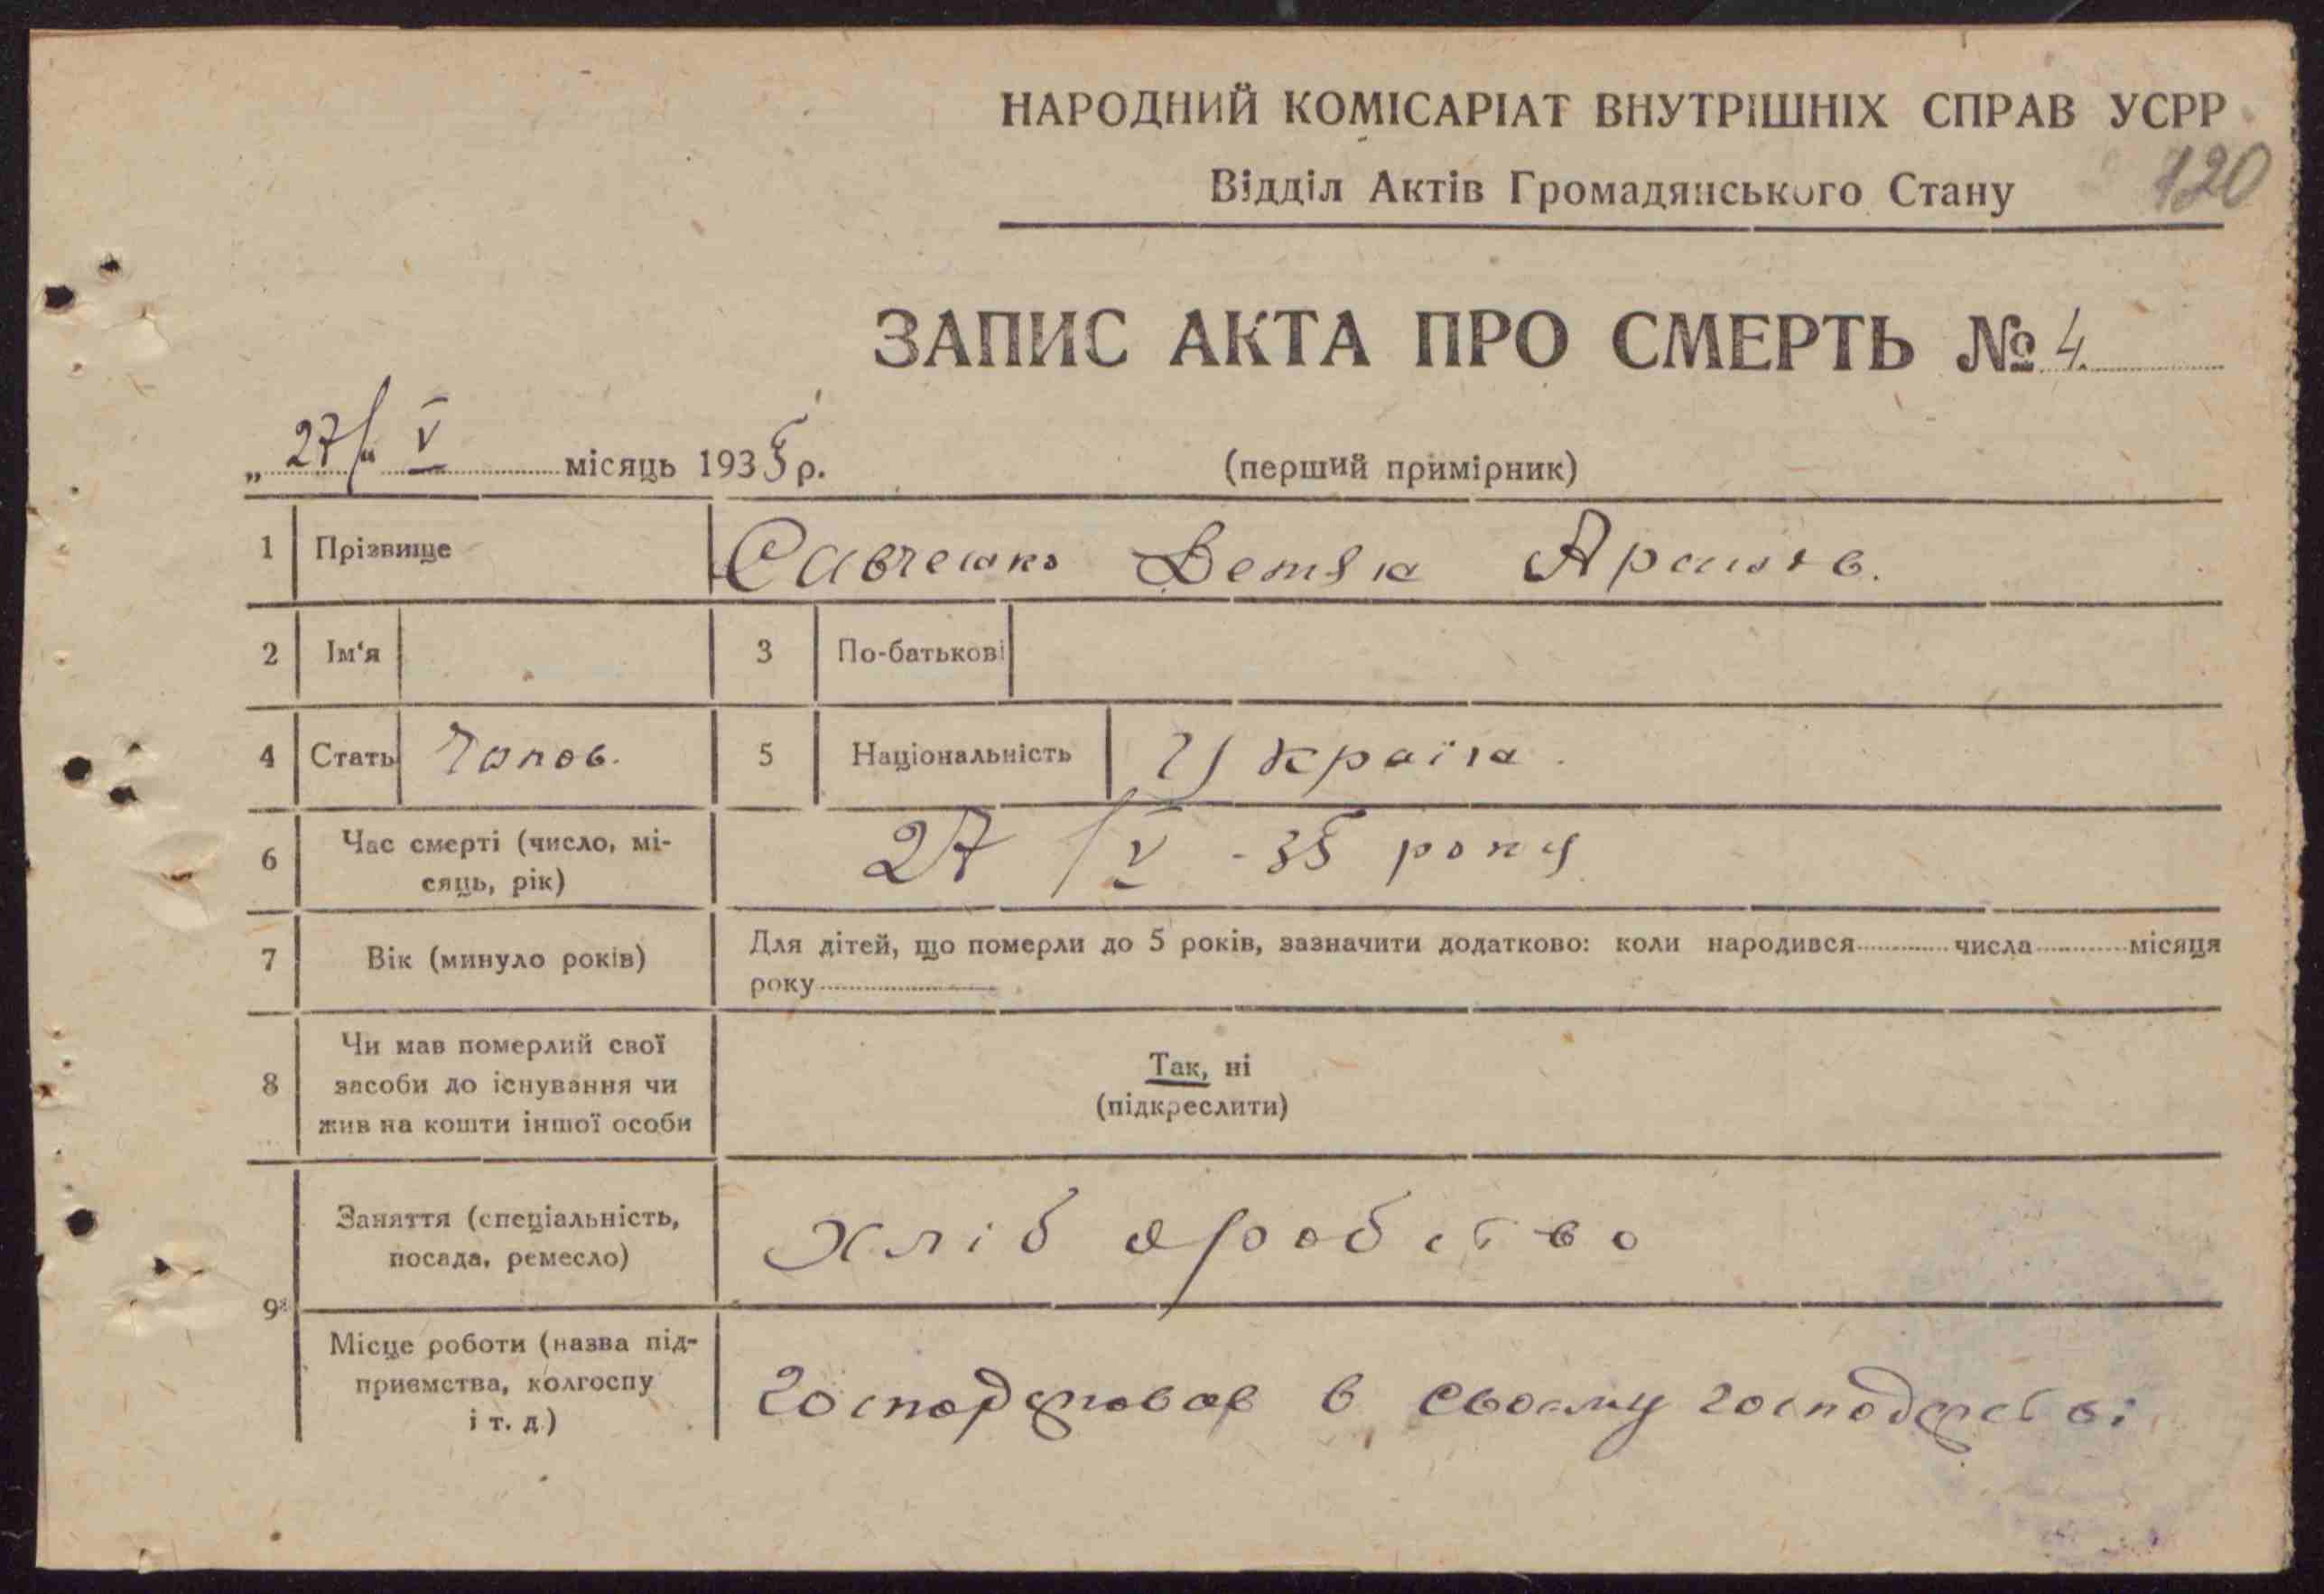 НАРОДНИЙ КОМІСАРІАТ ВНУТРІШНІХ СПРАВ УСРР
120
Відділ Актів Громадянського Стану
ЗАПИС АКТА ПРО СМЕРТЬ № 4.
„27/“ V місяць 1935 р. (перший примірник)
1 Прізвище Савченко
2 Ім'я 3 По-батькові
4 Стать Чолов. 5 Національність Україна.
6 Час смерті (число, мі-
сяць, рік) 27/V - 35 року
7 Вік (минуло років) Для дітей, що померли до 5 років, зазначити додатково: коли народився числа місяця
року
8 Чи мав померлий свої
засоби до існування чи
жив на кошти іншої особи
Так, ні
(підкреслити)
9 Заняття (спеціальність,
посада, ремесло) хліб оробство
Місце роботи (назва під-
приємства, колгоспу
і т. д.) в своєму господарстві